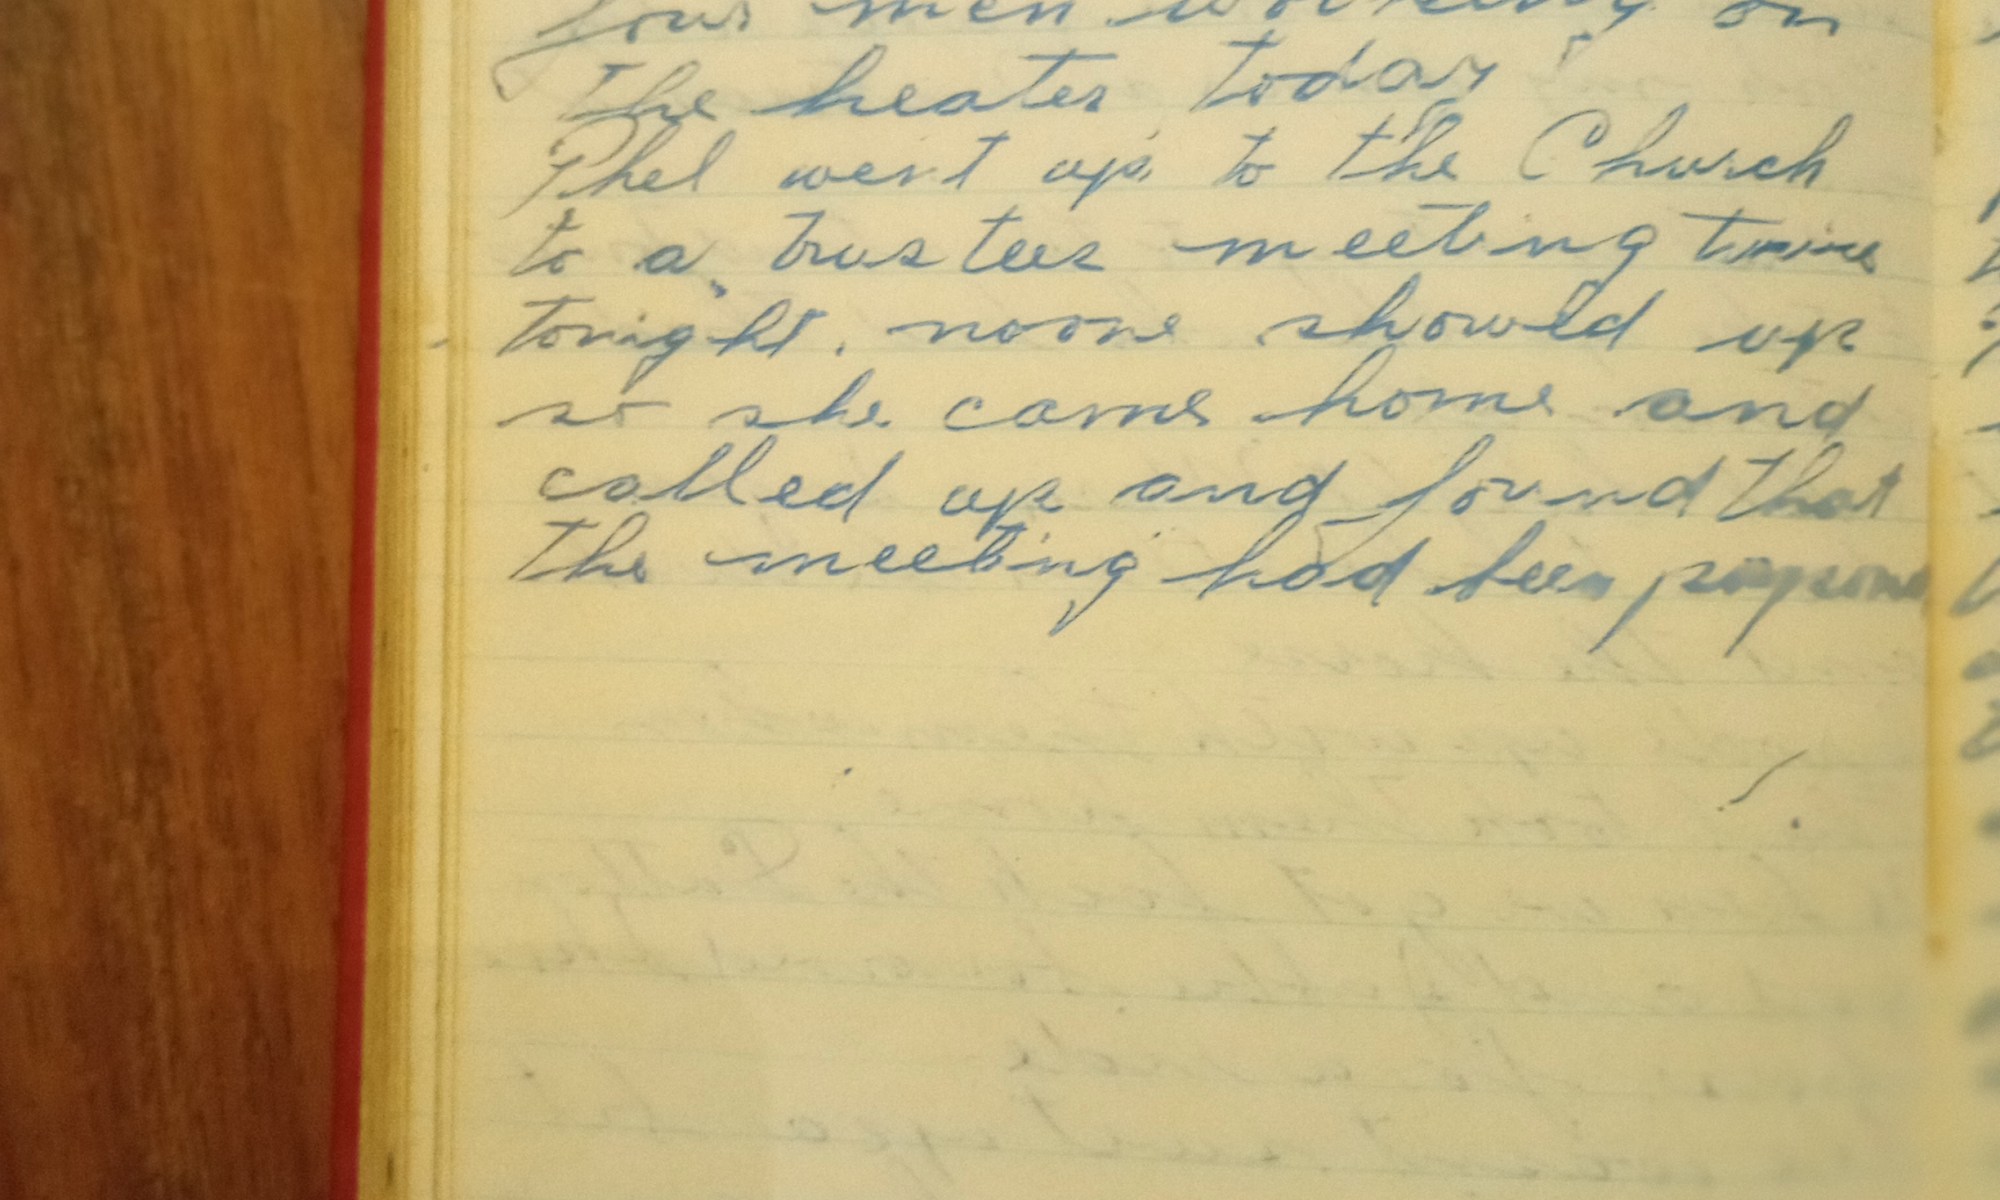 four men working on
the heater today
Phel went up to the Church
to a trustees meeting
tonight. noone showed up
so she came home and
called up and found that
the meeting had been